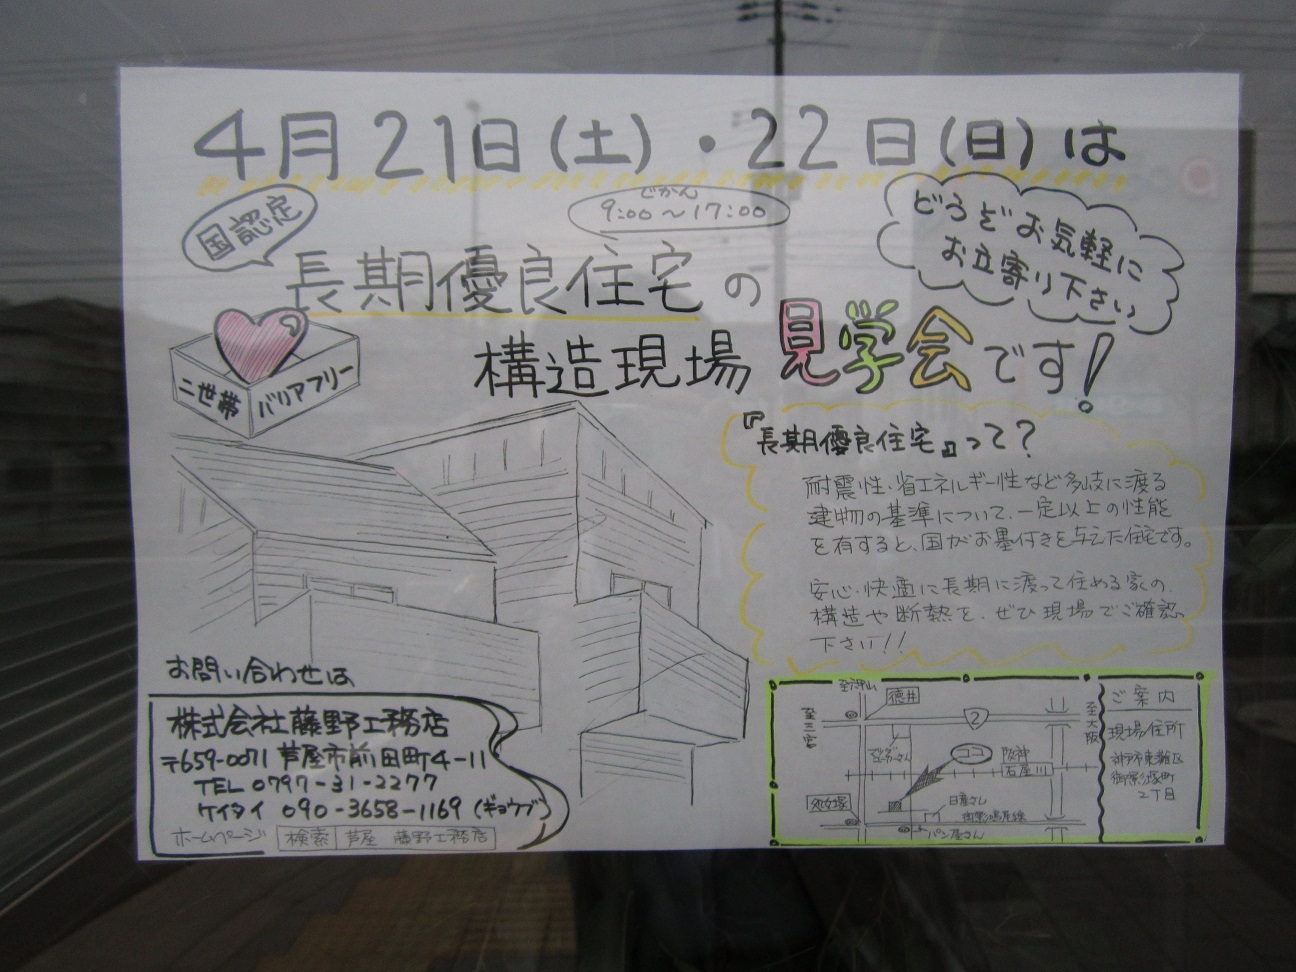 4月21日(土)・22日(日)は
じかん
9:00〜17:00
国認定
どうぞお気軽に
お立寄り下さい
長期優良住宅の
構造現場見学会です!
二世帯
バリアフリー
『長期優良住宅』って?
耐震性・省エネルギー性など多岐に渡る
建物の基準について、一定以上の性能
を有すると、国がお墨付きを与えた住宅です。
安心・快適に長期に渡って住める家の、
構造や断熱を、ぜひ現場でご確認
下さい!!
お問い合わせは
株式会社藤野工務店
〒659-0071 芦屋市前田町4-11
TEL 0797-31-2277
ケイタイ 090-3658-1169 (ギョウブ)
ホームページ 検索 芦屋 藤野工務店
徳井
至三宮
2
至大阪
ココ
阪神
石屋川
処女塚
日産さん
パン屋さん
ご案内
現場住所
神戸市東灘区
御影塚町
2丁目